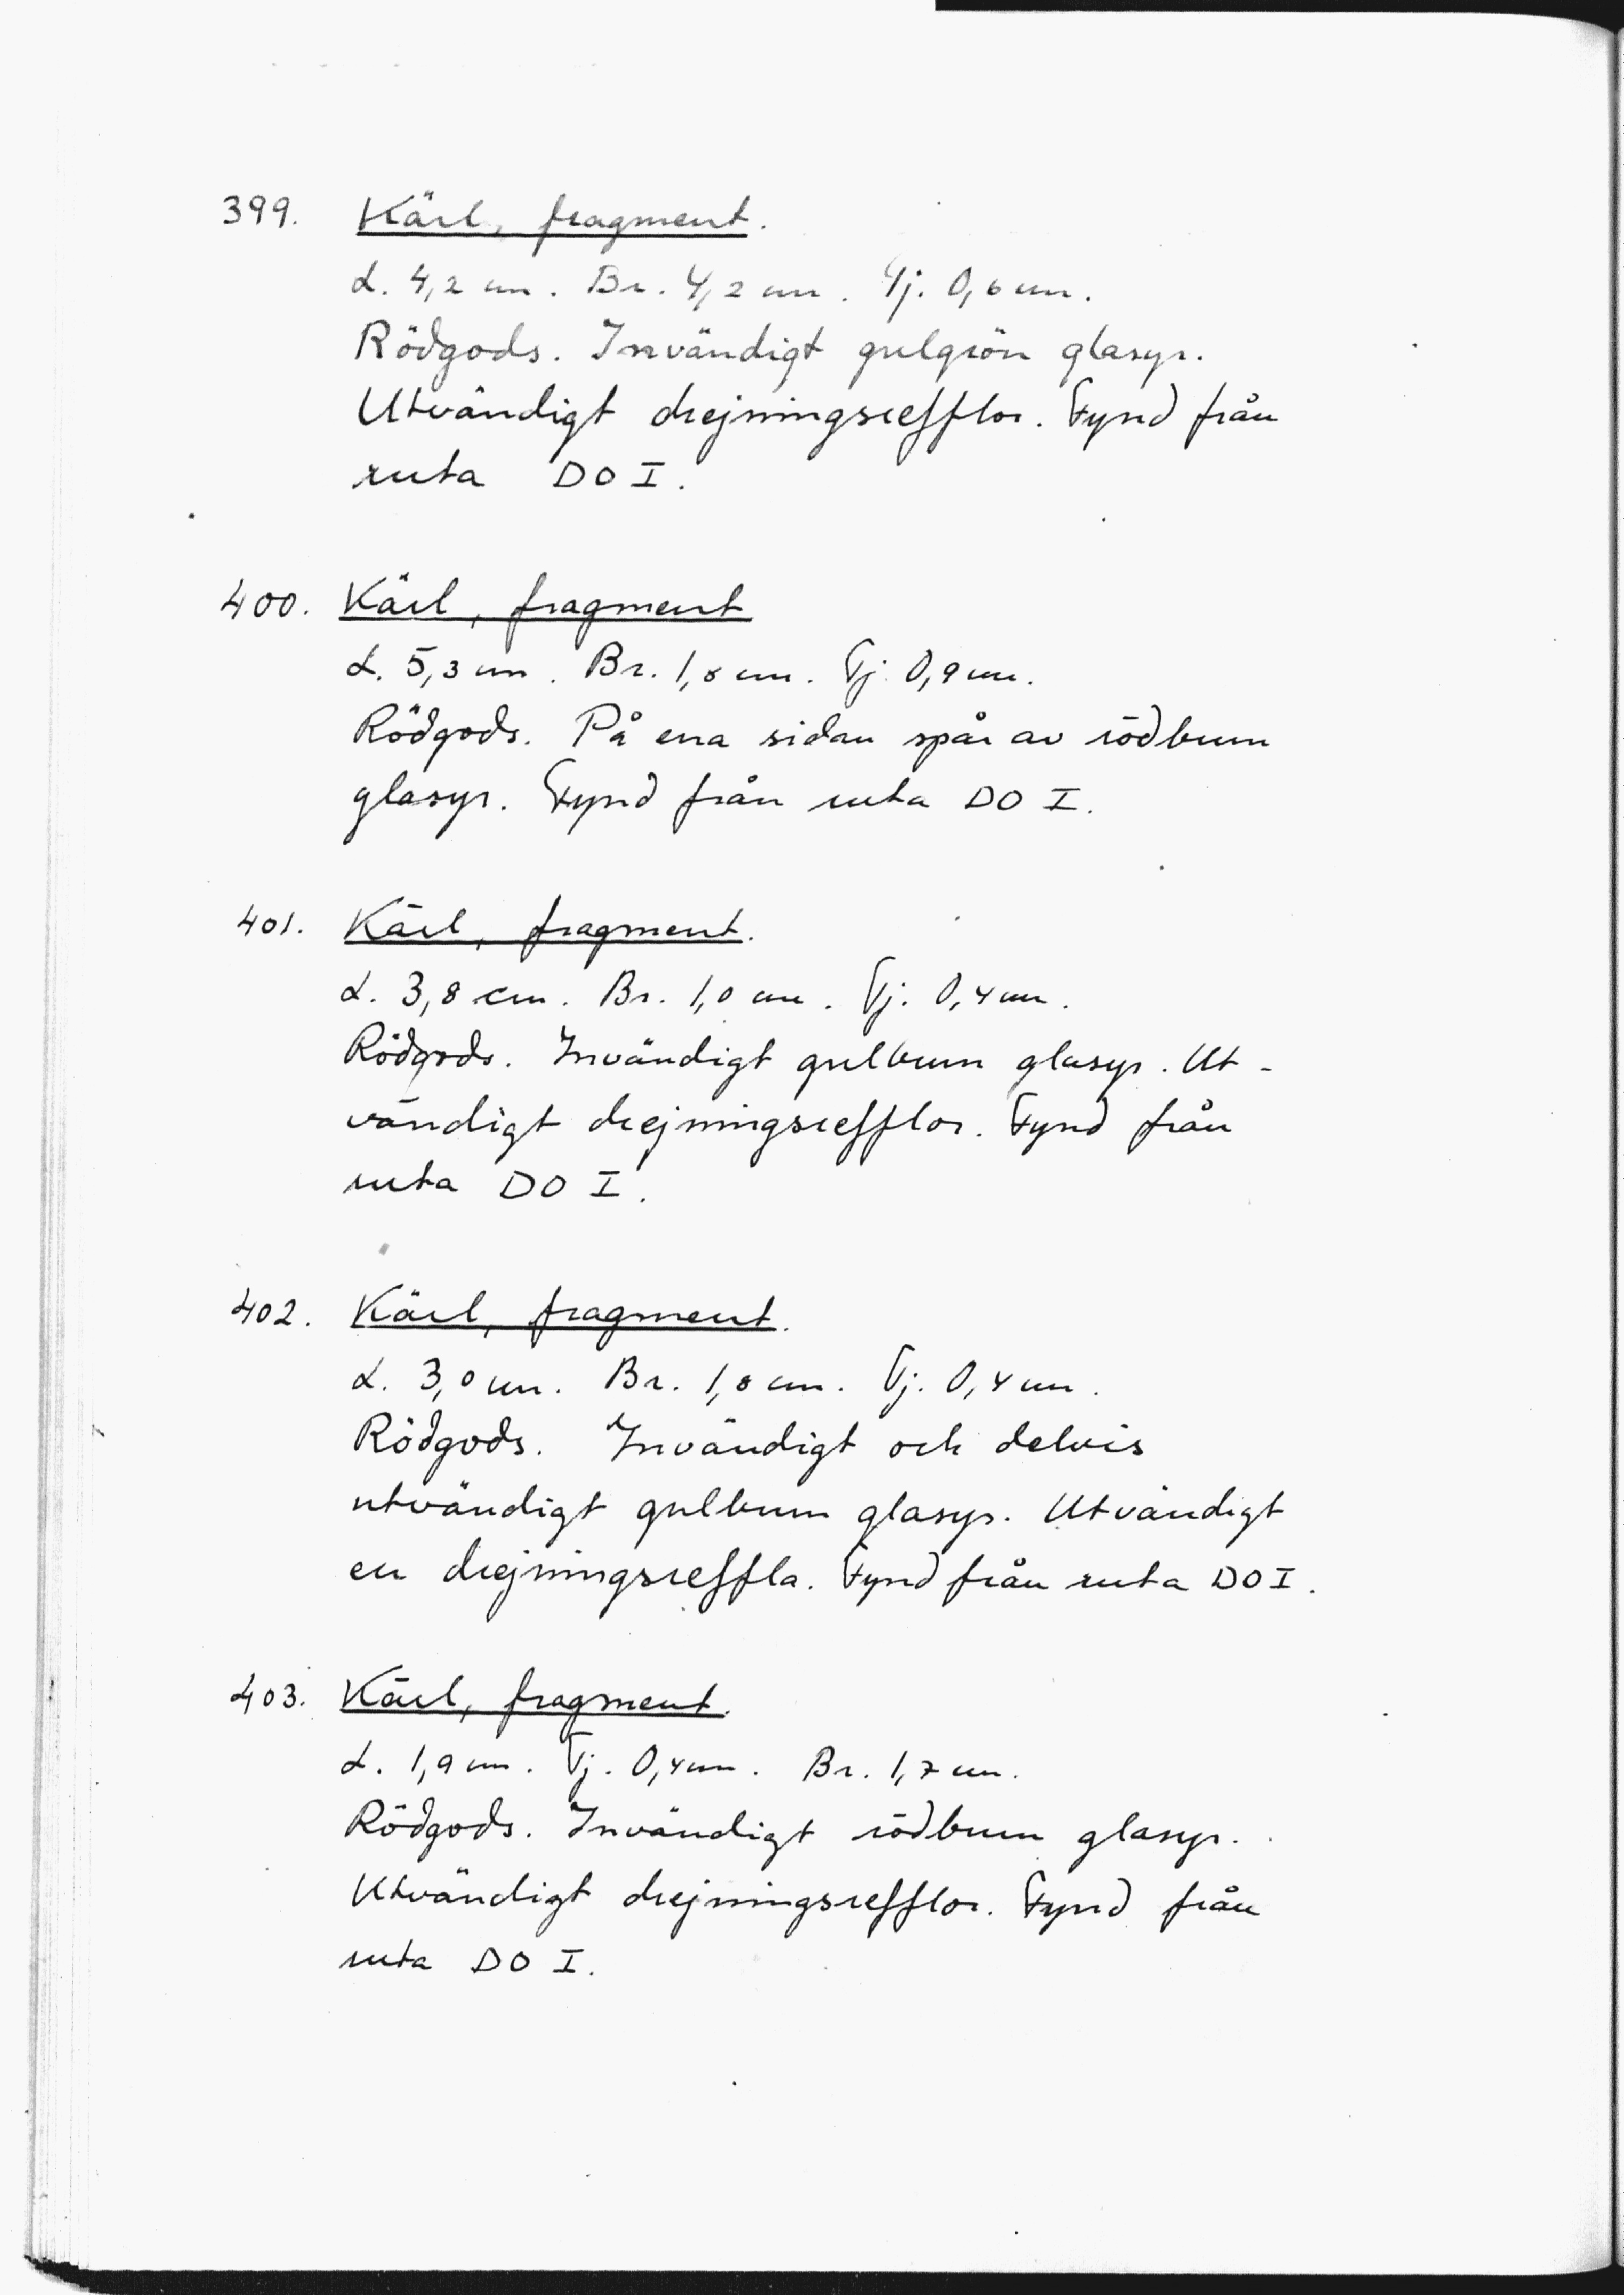 399. Kärl, fragment.
L. 4,2 cm. Br. 4,2 cm. Tj. 0,6 cm.
Rödgods. Invändigt gulgrön glasyr.
Utvändigt drejningsrefflor. Fynd från
ruta DO I.
400. Kärl, fragment
L. 5,3 cm. Br. 1,8 cm. Tj. 0,9 cm.
Rödgods. På ena sidan spår av rödbrun
glasyr. Fynd från ruta DO I.
401. Kärl, fragment.
L. 3,8 cm. Br. 1,0 cm. Tj. 0,4 cm.
Rödgods. Invändigt gulbrun glasyr. Ut-
vändigt drejningsrefflor. Fynd från
ruta DO I.
402. Kärl, fragment.
L. 3,0 cm. Br. 1,8 cm. Tj. 0,4 cm.
Rödgods. Invändigt och delvis
utvändigt gulbrun glasyr. Utvändigt
en drejningsreffla. Fynd från ruta DO I.
403. Kärl, fragment.
L. 1,9 cm. Tj. 0,4 cm. Br. 1,7 cm.
Rödgods. Invändigt rödbrun glasyr.
Utvändigt drejningsrefflor. Fynd från
ruta DO I.